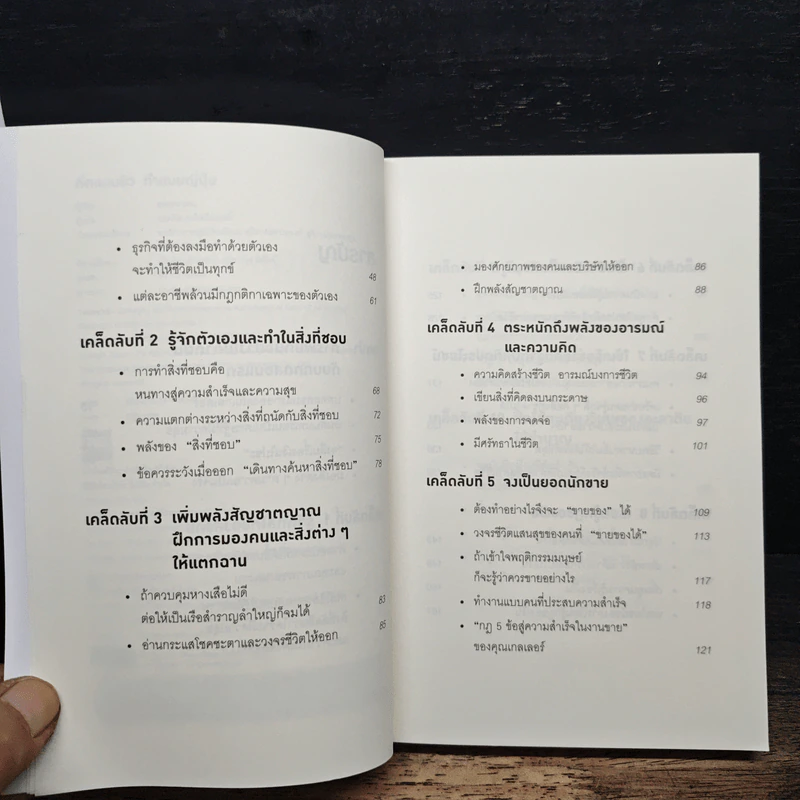 • ธุรกิจที่ต้องลงมือทำด้วยตัวเอง
จะทำให้ชีวิตเป็นทุกข์ 48
• แต่ละอาชีพล้วนมีกฎกติกาเฉพาะของตัวเอง 61
เคล็ดลับที่ 2 รู้จักตัวเองและทำในสิ่งที่ชอบ
• การทำสิ่งที่ชอบคือ
หนทางสู่ความสำเร็จและความสุข 68
• ความแตกต่างระหว่างสิ่งที่ถนัดกับสิ่งที่ชอบ 72
• พลังของ “สิ่งที่ชอบ” 75
• ข้อควรระวังเมื่อออก “เดินทางค้นหาสิ่งที่ชอบ” 78
เคล็ดลับที่ 3 เพิ่มพลังสัญชาตญาณ
ฝึกการมองคนและสิ่งต่าง ๆ
ให้แตกฉาน
• ถ้าควบคุมหางเสือไม่ดี
ต่อให้เป็นเรือสำราญลำใหญ่ก็จมได้ 83
• อ่านกระแสโชคชะตาและวงจรชีวิตให้ออก 85
• มองศักยภาพของคนและบริษัทให้ออก 86
• ฝึกพลังสัญชาตญาณ 88
เคล็ดลับที่ 4 ตระหนักถึงพลังของอารมณ์
และความคิด
• ความคิดสร้างชีวิต อารมณ์บงการชีวิต 94
• เขียนสิ่งที่คิดลงบนกระดาษ 96
• พลังของการจดจ่อ 97
• มีศรัทธาในชีวิต 101
เคล็ดลับที่ 5 จงเป็นยอดนักขาย
• ต้องทำอย่างไรจึงจะ “ขายของ” ได้ 109
• วงจรชีวิตแสนสุขของคนที่ “ขายของได้” 113
• ถ้าเข้าใจพฤติกรรมมนุษย์
ก็จะรู้ว่าควรขายอย่างไร 117
• ทำงานแบบคนที่ประสบความสำเร็จ 118
• “กฎ 5 ข้อสู่ความสำเร็จในงานขาย”
ของคุณเกลเลอร์ 121